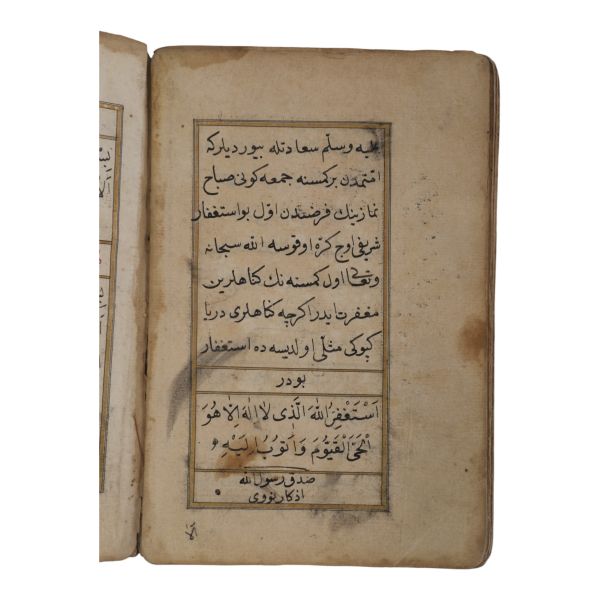 علیه وسلم سعادتله بیوردیلرکه
امتمدن برکمسنه جمعه کونی صباح
نمازینك فرضندن اوّل بو استغفار
شریفی اوج کرّه اوقوسه الله سبحانه
وتعالی اول کمسنه نك کناهلرین
مغفرت ایدر اکرچه کناهلری دریا
کپوکی مثلی اولدیسه ده استغفار
بودر
اَسْتَغْفِرُ اللهَ الَّذی لا اِلٰهَ اِلاّ هُوَ
الْحَیَّ الْقَیُّومَ وَاَتُوبُ اِلَیْهِ
صدق رسول الله
اذکار نووی